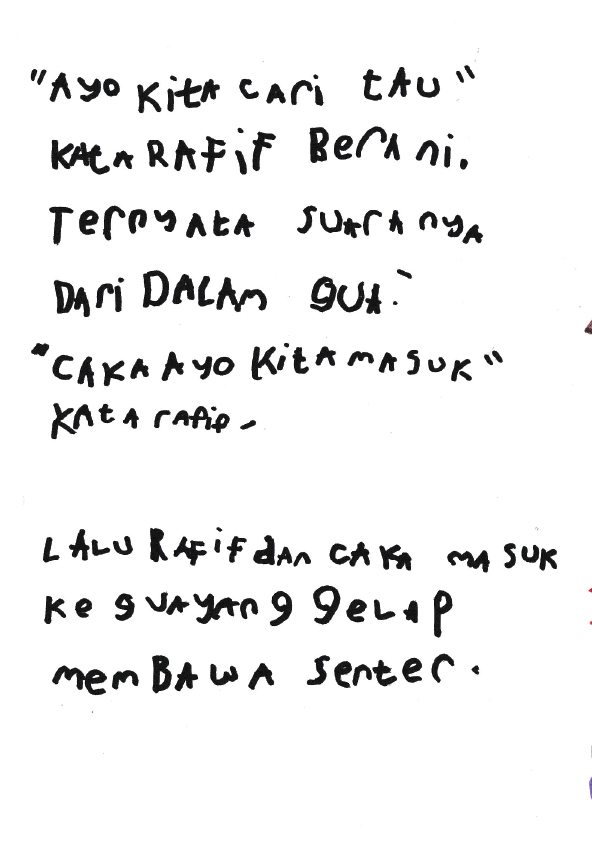 "AYO KitA CARi tAU"
KAtA RAFiF BerAni.
TernyAtA SUArAnyA
DAri DALAm gUA.
"CAKA AYO KitA mASUK"
KAtA rAfip.
LALU RAFiF dAn CAKA mASUK
Ke gUA yAng geLAp
memBAWA Senter.